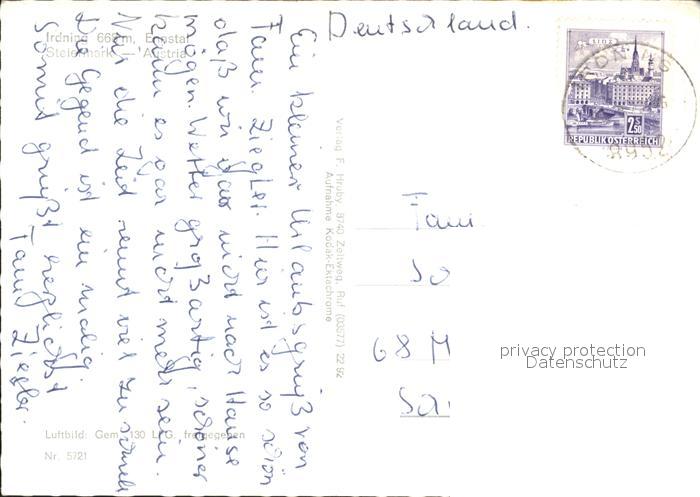 Deutschland.
Irdning 668 m, Ennstal
Steiermark - Austria
Ein kleiner Urlaubsgruß von
Fam. Ziegler. Hier ist es so schön
daß wir gar nicht nach Hause
mögen. Wetter großartig, schöner
kann es gar nicht mehr sein.
Nur die Zeit rennt viel zu schnell
Die Gegend ist einmalig.
Somit grüßt herzlichst
Fam. Ziegler.
Verlag F. Hruby, 8740 Zeltweg, Ruf (03577) 22 92
Aufnahme Kodak-Ektachrome
LINZ
2.50
REPUBLIK ÖSTERREICH
IRDNING
8952
Fam.
So
68 M
privacy protection
Datenschutz
Luftbild: Gem. 130 LFG. freigegeben
Nr. 5721